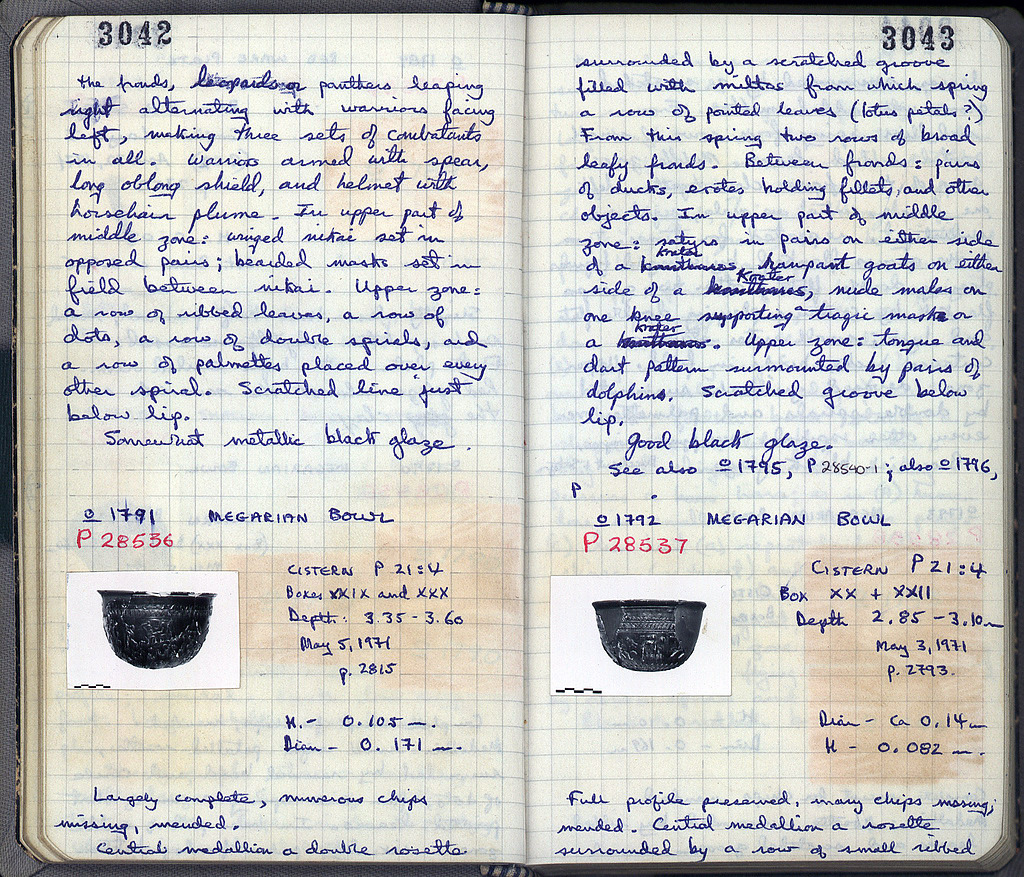 3042
the fronds, leopards or panthers leaping
right alternating with warriors facing
left, making three sets of combatants
in all. Warriors armed with spear,
long oblong shield, and helmet with
horsehair plume. In upper part of
middle zone: winged nikai set in
opposed pairs; bearded masks set in
field between nikai. Upper zone:
a row of ribbed leaves, a row of
dots, a row of double spirals, and
a row of palmettes placed over every
other spiral. Scratched line just
below lip.
Somewhat metallic black glaze.
o 1791 MEGARIAN BOWL
P 28536
CISTERN P 21:4
Boxes XXIX and XXX
Depth: 3.35 - 3.60
May 5, 1971
p. 2815
H. - 0.105 m.
Diam - 0.171 m.
Largely complete, numerous chips
missing, mended.
Central medallion a double rosette
3043
surrounded by a scratched groove
filled with miltos from which spring
a row of pointed leaves (lotus petals?)
From this spring two rows of broad
leafy fronds. Between fronds: pairs
of ducks, erotes holding fillets, and other
objects. In upper part of middle
zone: satyrs in pairs on either side
krater
of a kantharos, rampant goats on either
Krater
side of a kantharos, nude males on
one knee supporting a tragic mask or
krater
a kantharos. Upper zone: tongue and
dart pattern surmounted by pairs of
dolphins. Scratched groove below
lip.
Good black glaze.
See also o 1795, P 28540-1; also o 1796,
P .
o 1792 MEGARIAN BOWL
P 28537
CISTERN P 21:4
Box XX + XXII
Depth 2.85 - 3.10 m
May 3, 1971
p. 2793.
Diam - ca 0.14 m
H - 0.082 m.
Full profile preserved, many chips missing;
mended. Central medallion a rosette
surrounded by a row of small ribbed